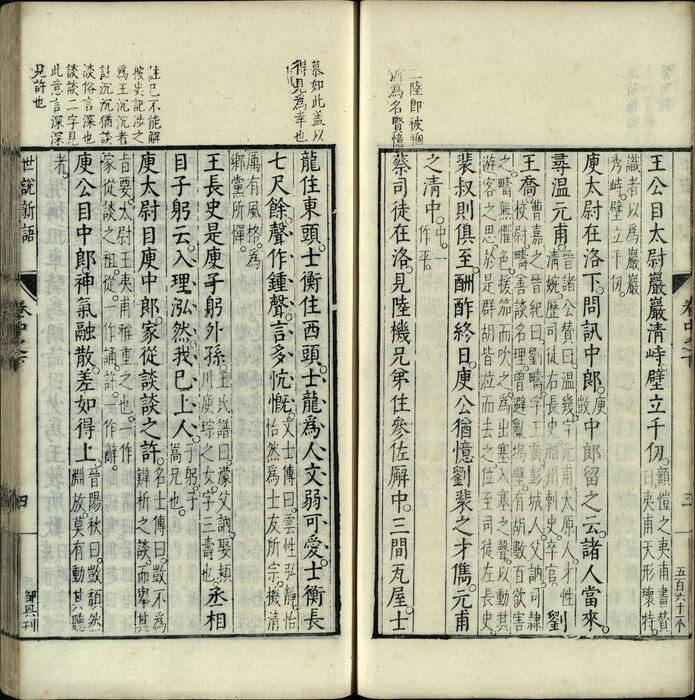 二陸即被裀
猶為名賢憶
王公目太尉巖巖清峙壁立千仞顧愷之夷甫畫贊曰夷甫天形瓌特
識者以為巖巖秀峙壁立千仞
庾太尉在洛下問訊中郎庾敳中郎留之云諸人當來
尋溫元甫晉諸公贊曰溫幾字元甫太原人才性清婉歷司徒右長史湘州刺史卒官劉
王喬曹嘉之晉紀曰劉疇字王喬彭城人父訥司隸校尉疇善談名理曾避亂塢壁有胡數百欲害
之疇無懼色援笳而吹之為出塞入塞之聲以動其遊客之思於是群胡皆泣而去之位至司徒左長史
裴叔則俱至酬酢終日庾公猶憶劉裴之才儁元甫
之清中中一作平
蔡司徒在洛見陸機兄弟住參佐廨中三間瓦屋士
三
五百六十二不
慕如此蓋以
得見為幸也
註已不能解
披史記涉之
為王沉沉者
註沉沉猶談
談俗言深也
談談二字見
此意言深深
見許也
龍住東頭士衡住西頭士龍為人文弱可愛士衡長
七尺餘聲作鍾聲言多忼慨文士傳曰雲性弘靜怡怡然為士友所宗機清
厲有風格為鄉黨所憚
王長史是庾子躬外孫王氏譜曰濛父訥娶潁川庾琮之女字三壽也丞相
目子躬云入理泓然我已上人子躬子嵩兄也
庾太尉目庾中郎家從談談之許名士傳曰敳不為辨析之談而舉其
旨要太尉王夷甫雅重之也一作家從談之祖從一作誦許一作辭
庾公目中郎神氣融散差如得上晉陽秋曰敳頹然淵放莫有動其聽
者
世說新語
卷中之下
四
鄒興刊